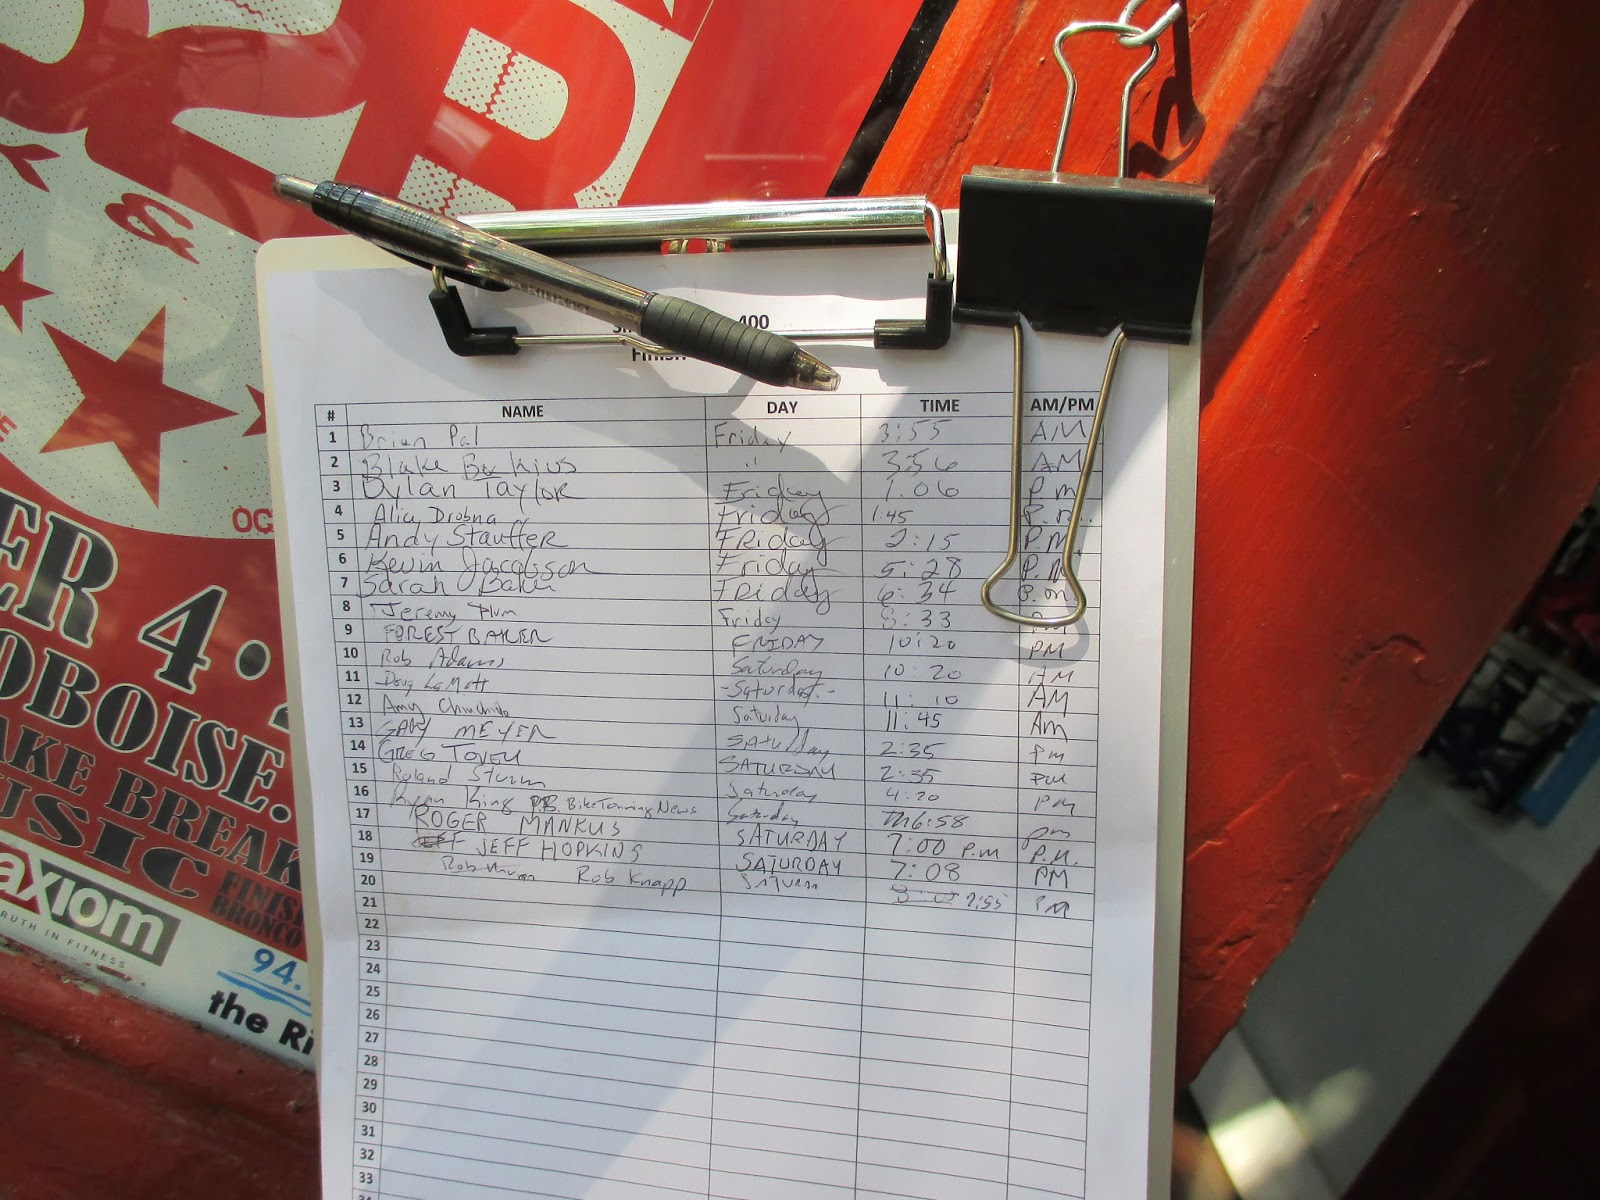 400
Finish
# NAME DAY TIME AM/PM
1 Brian Pal Friday 3:55 AM
2 Blake " 3:56 AM
3 Dylan Taylor Friday 1:06 P.m
4 Alicia Drobna Friday 1:45 P.m.
5 Andy Stauffer FRiday 2:15 P.M.
6 Kevin Jacobson Friday 5:28 P.M
7 Sarah Baker FRiday 6:34 P.m
8 Jeremy Plum Friday 8:33 PM
9 FOREST BAKER FRIDAY 10:20 PM
10 Rob Adams Saturday 10:20 AM
11 Doug LaMott -Saturday- 11:10 AM
12 Amy Saturday 11:45 Am
13 GARY MEYER SATurday 2:35 pm
14 GREG SATURDAY 2:35 PM
15 Roland Sturm Saturday 4:20 PM
16 Ryan King Bike Touring News Saturday 6:58 pm
17 ROGER MANKUS SATURDAY 7:00 P.M P.M.
18 JEFF HOPKINS SATURDAY 7:08 PM
19 Rob Knapp 7:55 PM
20
21
22
23
24
25
26
27
28
29
30
31
32
33
&
OC
ER 4.
OBOISE.
AKE BREAK
USIC
FINISH
BRONCO
axiom
RUTH IN FITNESS
94.
the Ri